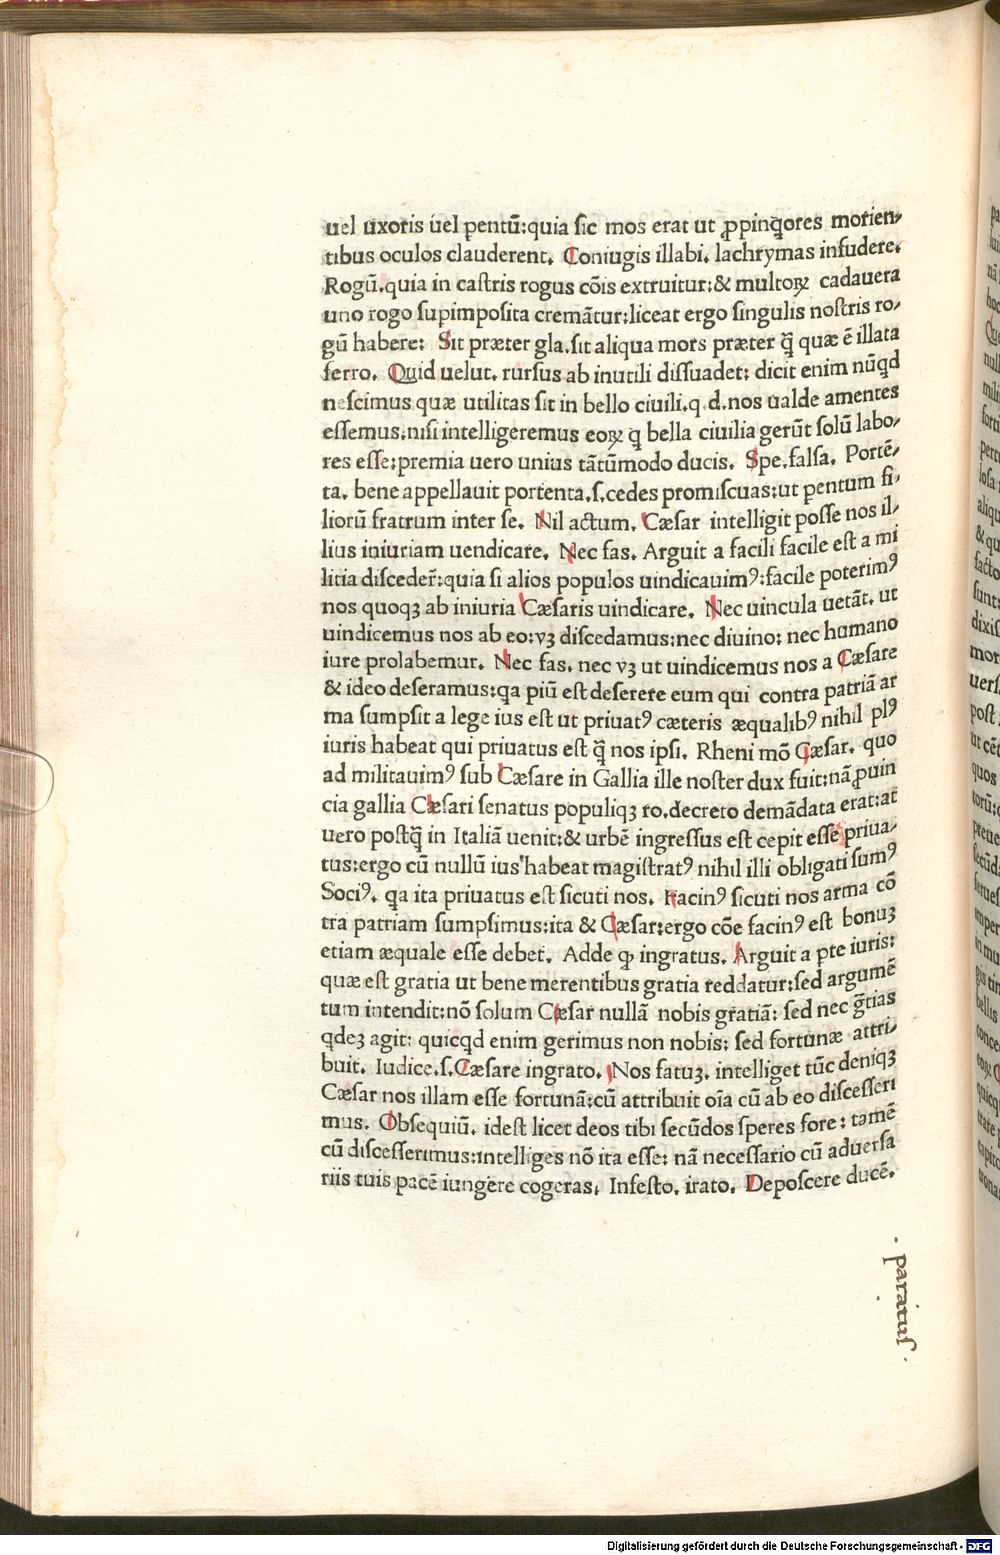 uel uxoris uel pentū:quia ſic mos erat ut ꝓpinqores morien⸗
tibus oculos clauderent. Coniugis illabi. lachrymas infudere.
Rogū.quia in caſtris rogus cōis extruitur:& multoꝝ cadauera
uno rogo ſupimpoſita cremātur:liceat ergo ſingulis noſtris ro⸗
gū habere: Sit præter gla.ſit aliqua mors præter q̄ quæ ē illata
ferro. Quid uelut. rurſus ab inutili diſſuadet: dicit enim nūqd
neſcimus quæ utilitas ſit in bello ciuili.q.d.nos ualde amentes
eſſemus:niſi intelligeremus eoꝝ q̄ bella ciuilia gerūt ſolū labo⸗
res eſſe:premia uero unius tātūmodo ducis. Spe.falſa. Portē⸗
ta. bene appellauit portenta.ſ.cedes promiſcuas:ut pentum fi⸗
liorū fratrum inter ſe. Nil actum. Cæſar intelligit poſſe nos il⸗
lius iniuriam uendicare. Nec fas. Arguit a facili facile eſt a mi
litia diſceder̄:quia ſi alios populos uindicauimꝰ:facile poterimꝰ
nos quoqꝫ ab iniuria Cæſaris uindicare. Nec uincula uetāt. ut
uindicemus nos ab eo:vꝫ diſcedamus:nec diuino: nec humano
iure prolabemur. Nec fas. nec vꝫ ut uindicemus nos a Cæſare
& ideo deſeramus:qa piū eſt deſerere eum qui contra patriā ar
ma ſumpſit a lege ius eſt ut priuatꝰ cæteris æqualibꝰ nihil plꝰ
iuris habeat qui priuatus eſt q̄ nos ipſi. Rheni mō Cæſar. quo
ad militauimꝰ ſub Cæſare in Gallia ille noſter dux fuit:nā ꝓuin
cia gallia Cæſari ſenatus populiqꝫ ro.decreto demādata erat:at
uero poſtq̄ in Italiā uenit:& urbē ingreſſus eſt cepit eſſe priua⸗
tus:ergo cū nullū ius habeat magiſtratꝰ nihil illi obligati ſumꝰ
Sociꝰ. qa ita priuatus eſt ſicuti nos. Facinꝰ ſicuti nos arma cō
tra patriam ſumpſimus:ita & Cæſar:ergo cōe facinꝰ eſt bonuꝫ
etiam æquale eſſe debet. Adde ꝙ ingratus. Arguit a ꝑte iuris:
quæ eſt gratia ut bene merentibus gratia reddatur:ſed argumē
tum intendit:nō ſolum Cæſar nullā nobis gratiā: ſed nec gr̄tias
qdeꝫ agit: quicqd enim gerimus non nobis: ſed fortunæ attri⸗
buit. Iudice.ſ.Cæſare ingrato. Nos fatuꝫ. intelliget tūc deniqꝫ
Cæſar nos illam eſſe fortunā:cū attribuit oīa cū ab eo diſceſſeri
mus. Obſequiū. ideſt licet deos tibi ſecūdos ſperes fore: tamē
cū diſceſſerimus:intelliges nō ita eſſe: nā neceſſario cū aduerſa
riis tuis pacē iungere cogeras. Infeſto. irato. Depoſcere ducē.
· paratuſ ·
Digitalisierung gefördert durch die Deutsche Forschungsgemeinschaft - DFG